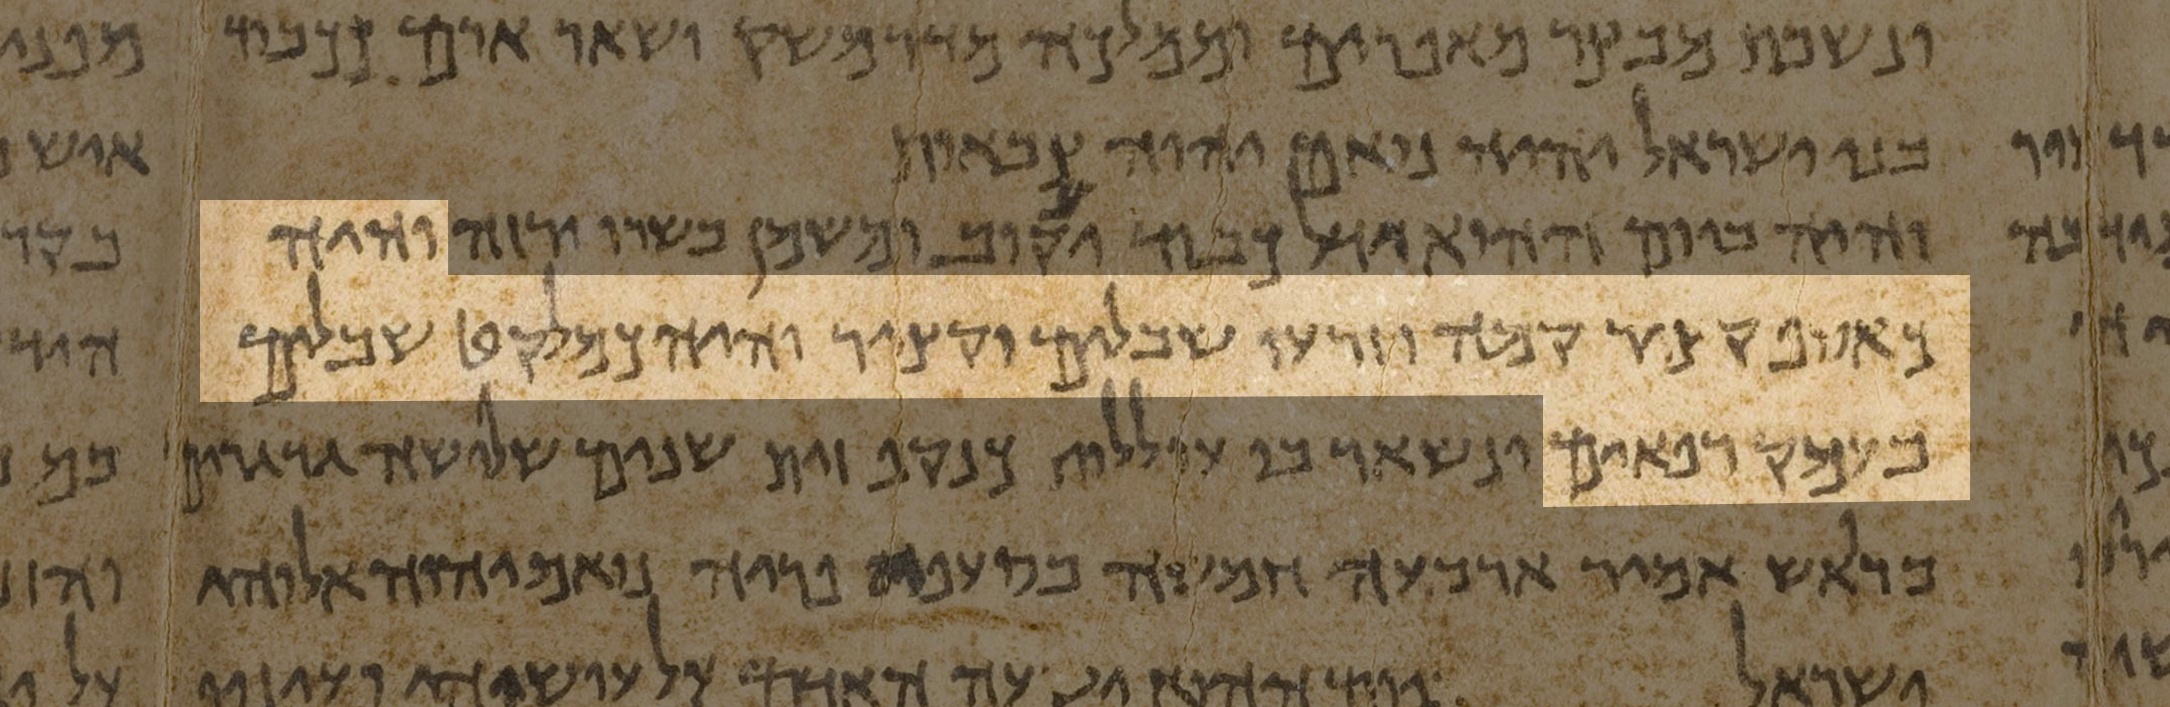 ונשבת מבצר מאפרים וממלכה מדרמשק ושאר ארם ככבוד
בני ישראל יהיה נואם יהוה צבאות
והיה ביום ההוא ידל כבוד יעקוב ומשמן בשרו ירזה והיה
כאוסף קציר קמה וזרעו שבלים יקצור והיה כמלקט שבלים
בעמק רפאים ונשאר בו עוללות כנקף זית שנים שלושה גרגרים
בראש אמיר ארבעה חמישה בסעפי פריה נואם יהוה אלוהי
ישראל ביום ההוא ישעה האדם על עושהו ועיניו